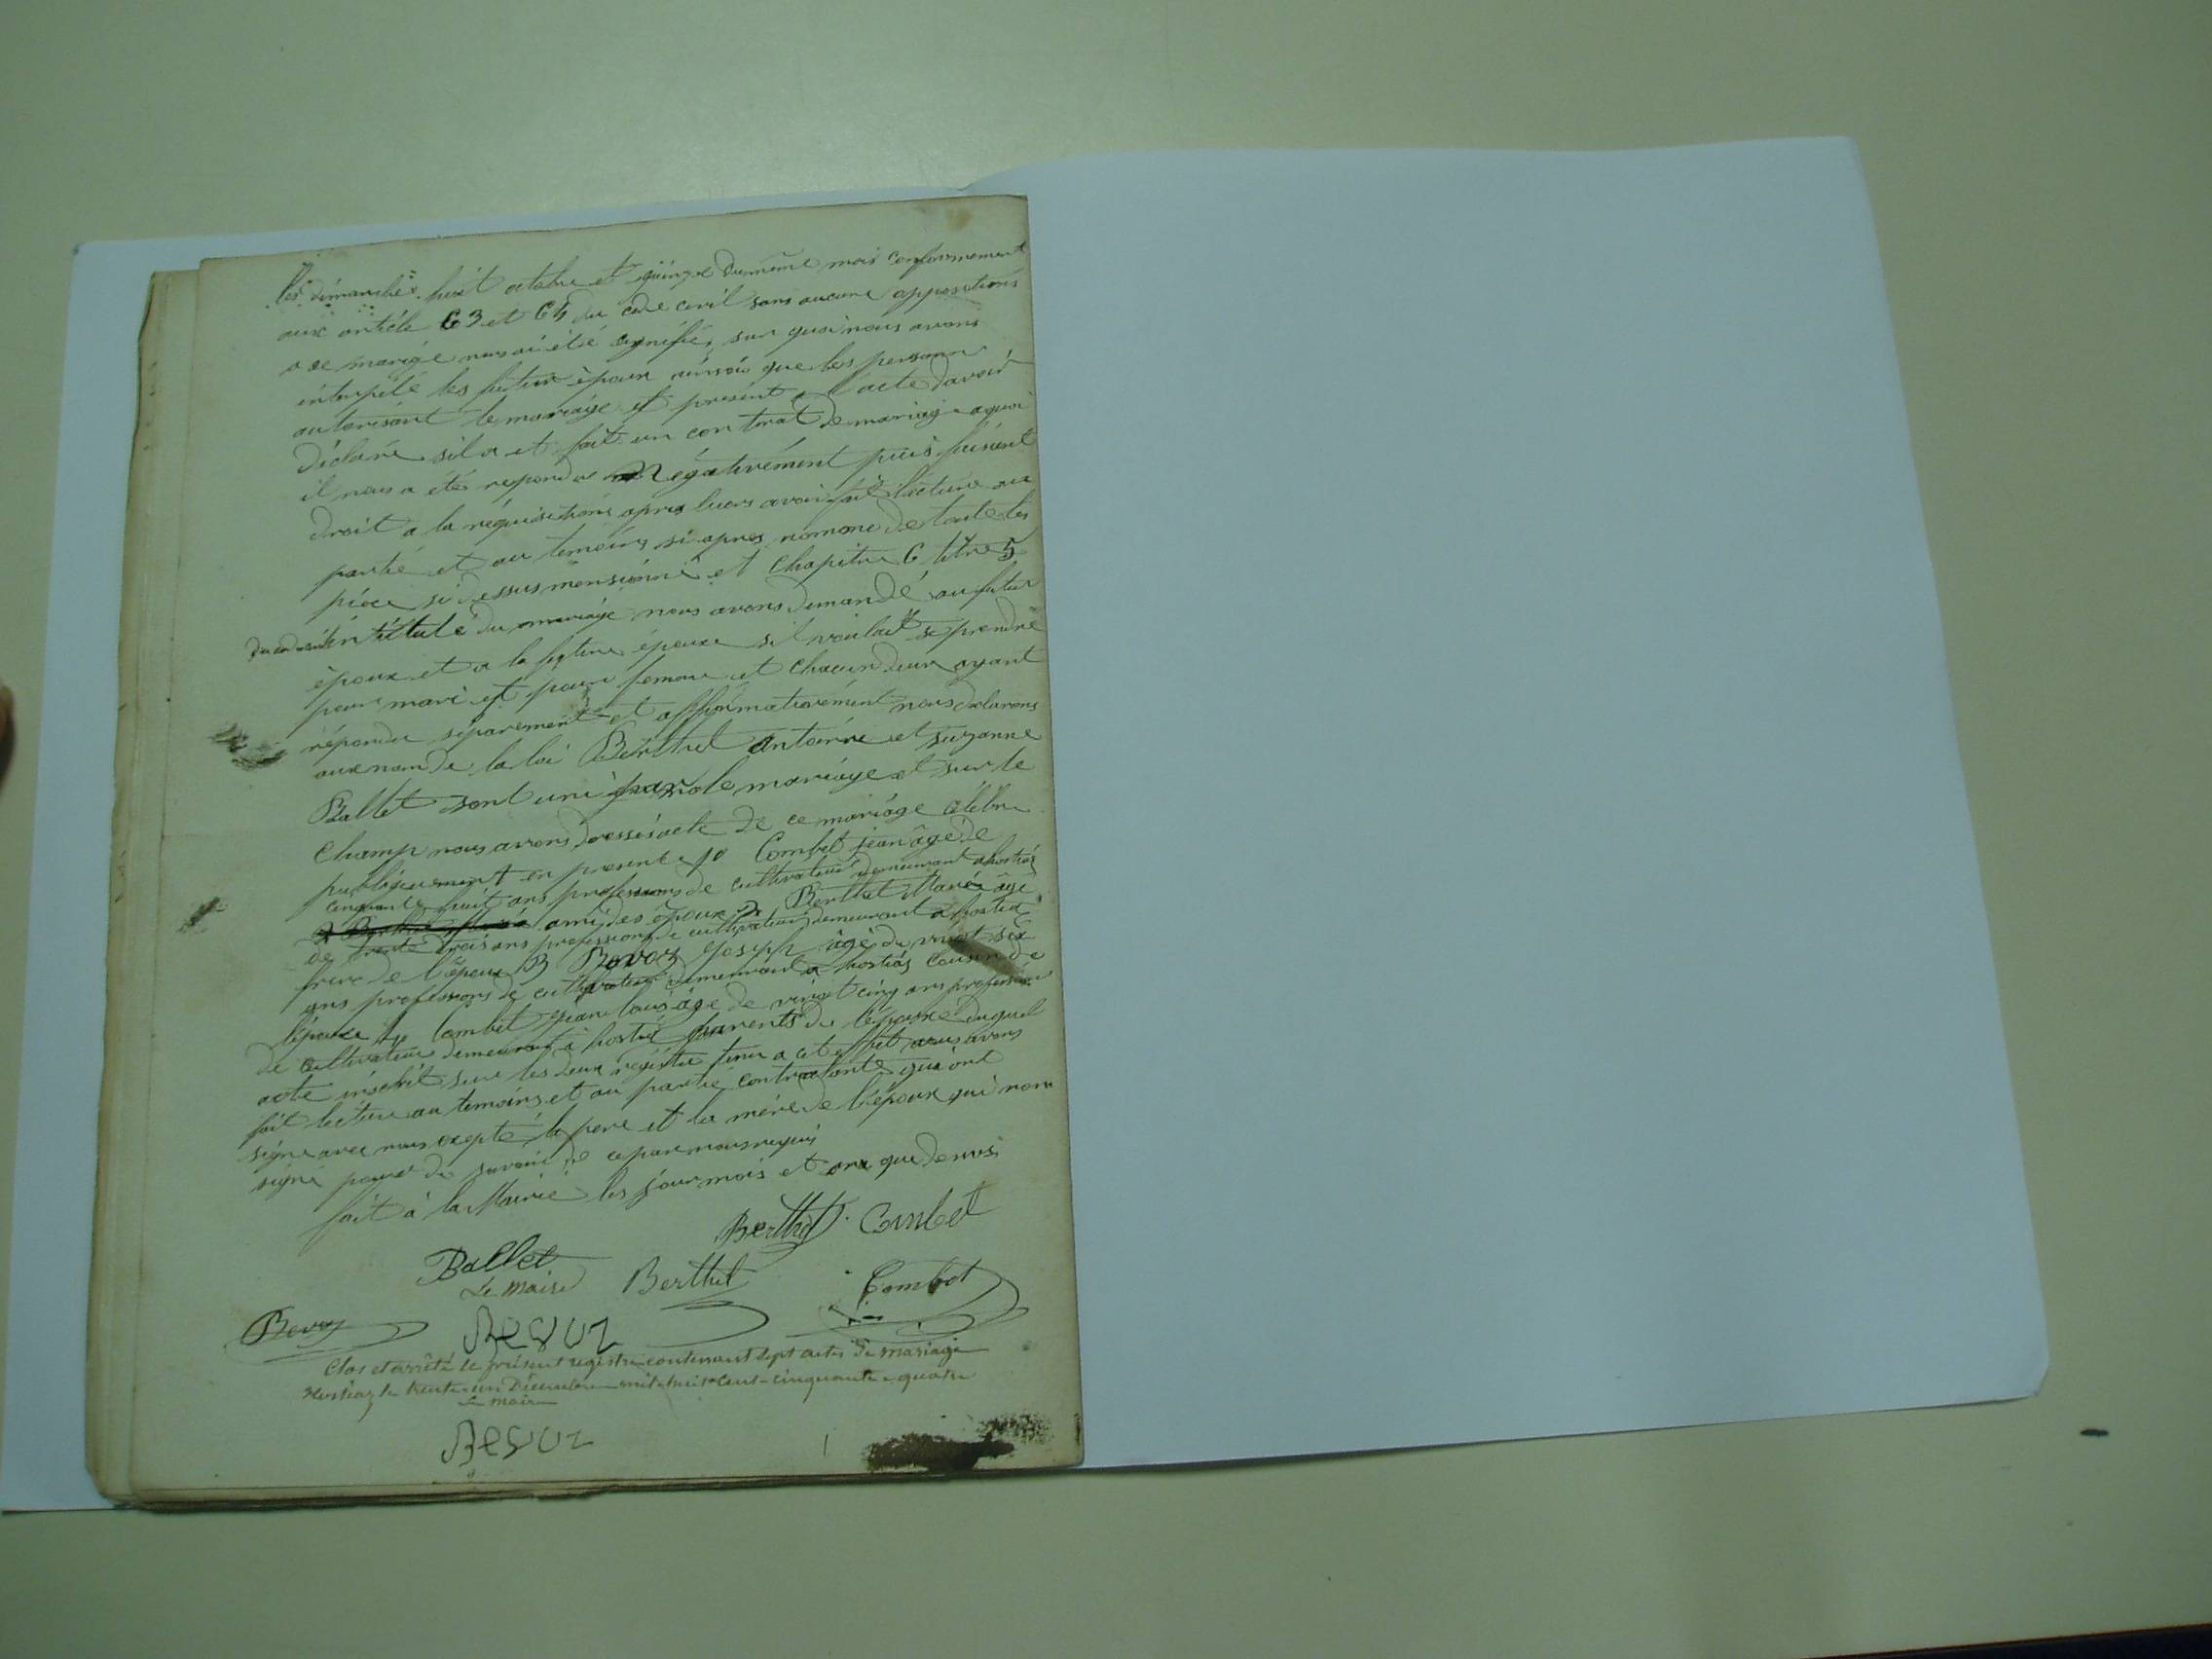 les dimanches huit octobre et quinze du même mois conformement
aux article 63 et 64 du code civil sans aucune oppositions
a ce mariage nus ai été signifié, sur quoi nous avons
interpélé les futur époux ainsi que les personne
autorisant le mariage et present a l'acte davoir
déclaré sil a et fait un contrat de mariage aquoi
il nous a étés repondu négativément puis faisant
droit a la réquisitions apres luers avoir fait lecture aux
partie et au temoins si apres nommé de toute les
pièce si dessus mensionné et Chapitre 6 titre 5
du code civil intitulé du mariage nous avons demandé au futur
époux et a la future épouse sil voulait se prendre
pour mari et pour femme et chacun deux ayant
répondu séparement et affirmativément nous déclarons
aux nom de la loi Berthet Antoinne et Suzanne
Ballet sont uni par le mariage et sur le
Champ nous avons dressés acte de ce mariage célébré
publiquement en presence 1º Combet jean âgé de
cinquante huit ans professions de cultivateur demeurant a hostiaz
ami des époux 2 Berthet Marie âgé
de trente trois ans professions de cultivateur demeurant a hostiaz
frere de l'époux 3 Bovoz Joseph âgé de vingt six
ans professions de cultivateur demeurant a hostiaz Cousin de
l'épouse 4 Combet jean louis âge de vingt cinq ans profession
de cultivateur demeurant à hostiaz parents de l'épouse duquel
acte inscrit sur les deux registre tenu a cet effet nous avons
fait lecture au temoins et au partie contractante qui ont
signé avec nous excepté le pere et la mére de l'époux qui non
signé pour de savoir de ce par nous requis
fait à la Mairie les jour mois et ans que dessus
Berthet Combet
Ballet
Le Maire Berthet Combet
Bovoz
Clos et arrêté le présent registre contenant sept actes de mariage
Hostiaz le trente-un Décembre mil-huit-cent-cinquante-quatre
Le maire